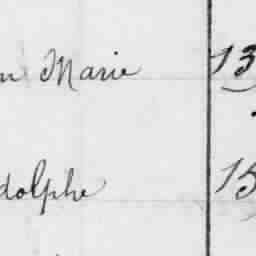 n Marie 13
dolphe 15